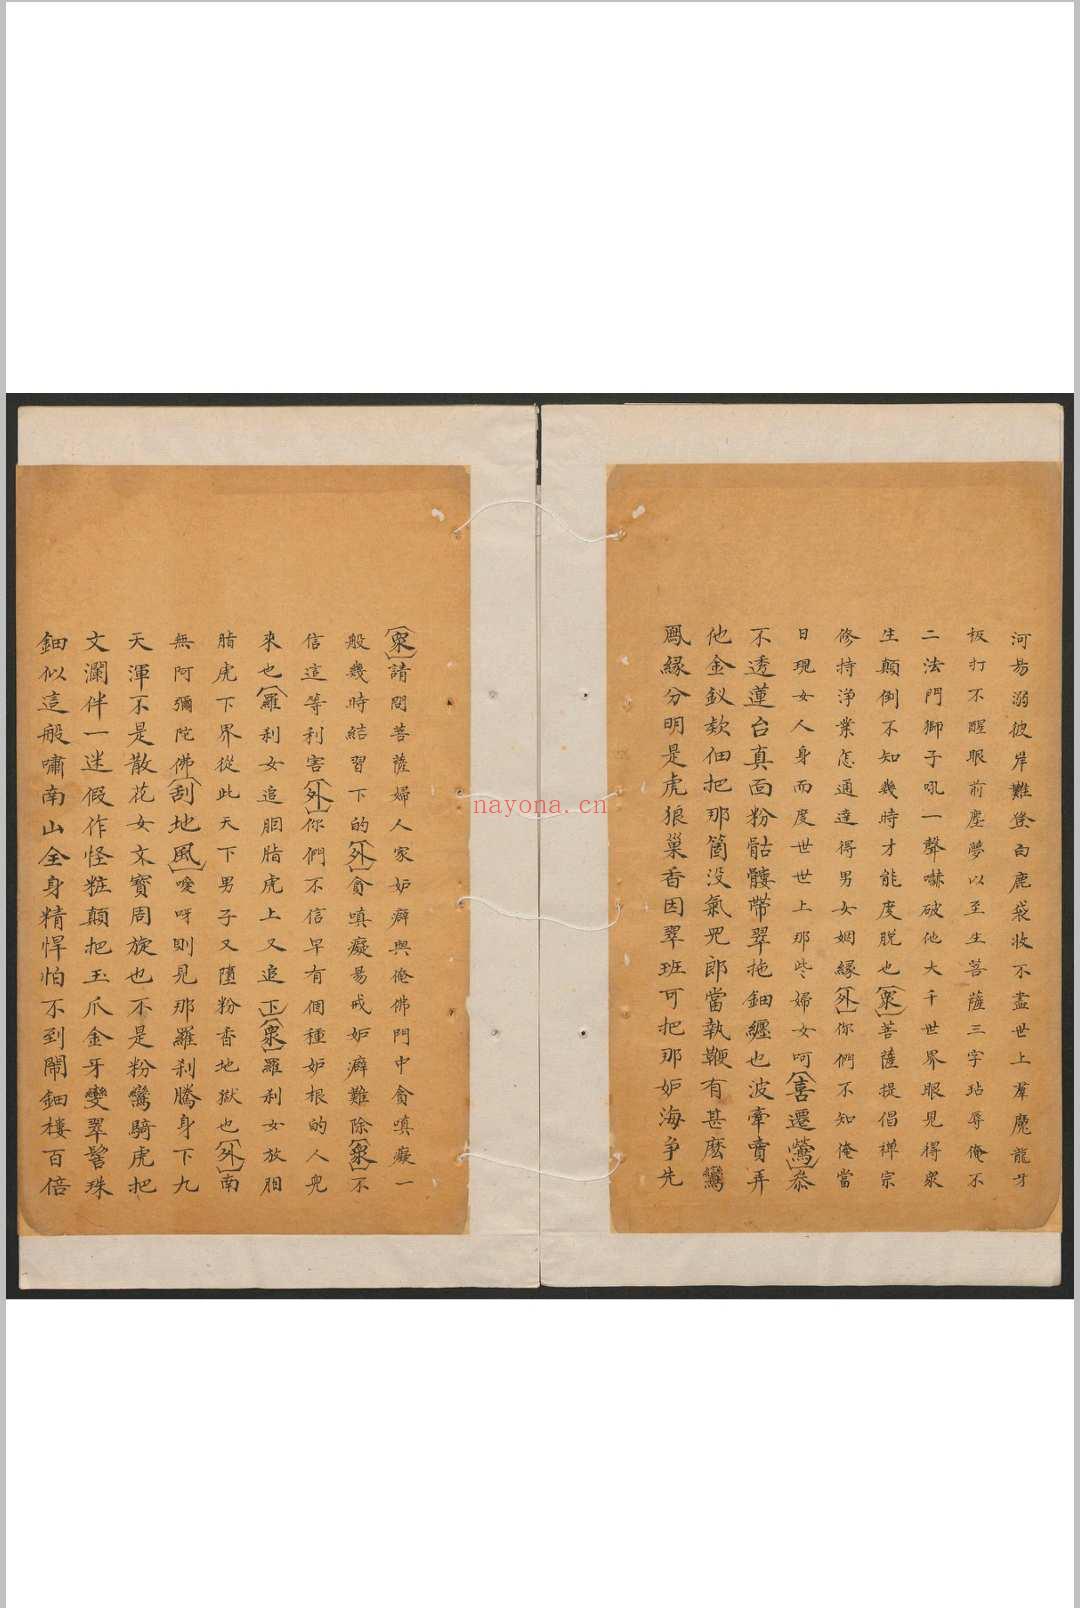 河易溺彼岸難登白鹿袋收不盡世上羣魔龍牙
板打不醒眼前塵夢以至生菩薩三字玷辱俺不
二法門獅子吼一聲嚇破他大千世界眼見得衆
生顛倒不知幾時才能度脫也(衆)菩薩提倡禪宗
修持淨業怎通達得男女姻緣(外)你們不知俺當
日現女人身而度世世上那些婦女呵(喜遷鶯)叅
不透蓮台真面粉骷髏帶翠拖鈿纏也波牽賣弄
他金釵欵佃把那箇没氣兕郎當執鞭有甚麽鸞
鳳緣分明是虎狼巢香因翠班可把那妒海争先
(衆)請問菩薩婦人家妒癖與俺佛門中貪嗔癡一
般幾時結習下的(外)貪嗔癡易戒妒癖難除(衆)不
信這等利害(外)你們不信早有個種妒根的人兒
來也(羅刹女追胭脂虎上又追下)(衆)羅刹女放胭
脂虎下界從此天下男子又墮粉香地獄也(外)南
無阿彌陀佛(刮地風)噯呀則見那羅刹騰身下九
天渾不是散花女文寳周旋也不是粉鸞騎虎把
文瀾伴一迷假作怪粧顛把玉爪金牙變翠髻珠
鈿似這般嘯南山全身精悍怕不到鬧鈿樓百倍
nayona.cn